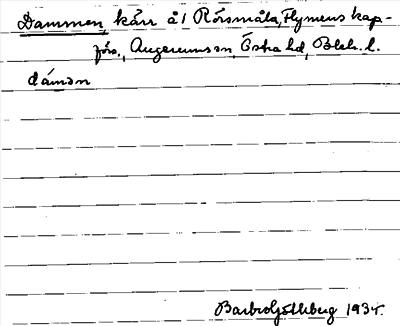 Dammen, kärr å 1 Rörsmåla, Flymens kap-
förs., Augerums sn, Östra hd, Blek. l.
dámən
Barbro Göthberg 1935.